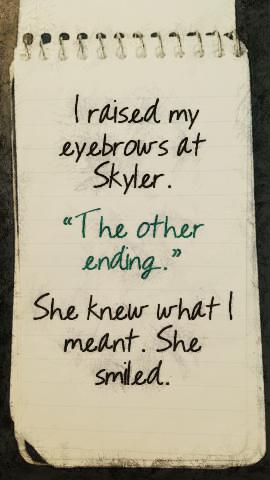 I raised my
eyebrows at
Skyler.
“The other
ending.”
She knew what I
meant. She
smiled.